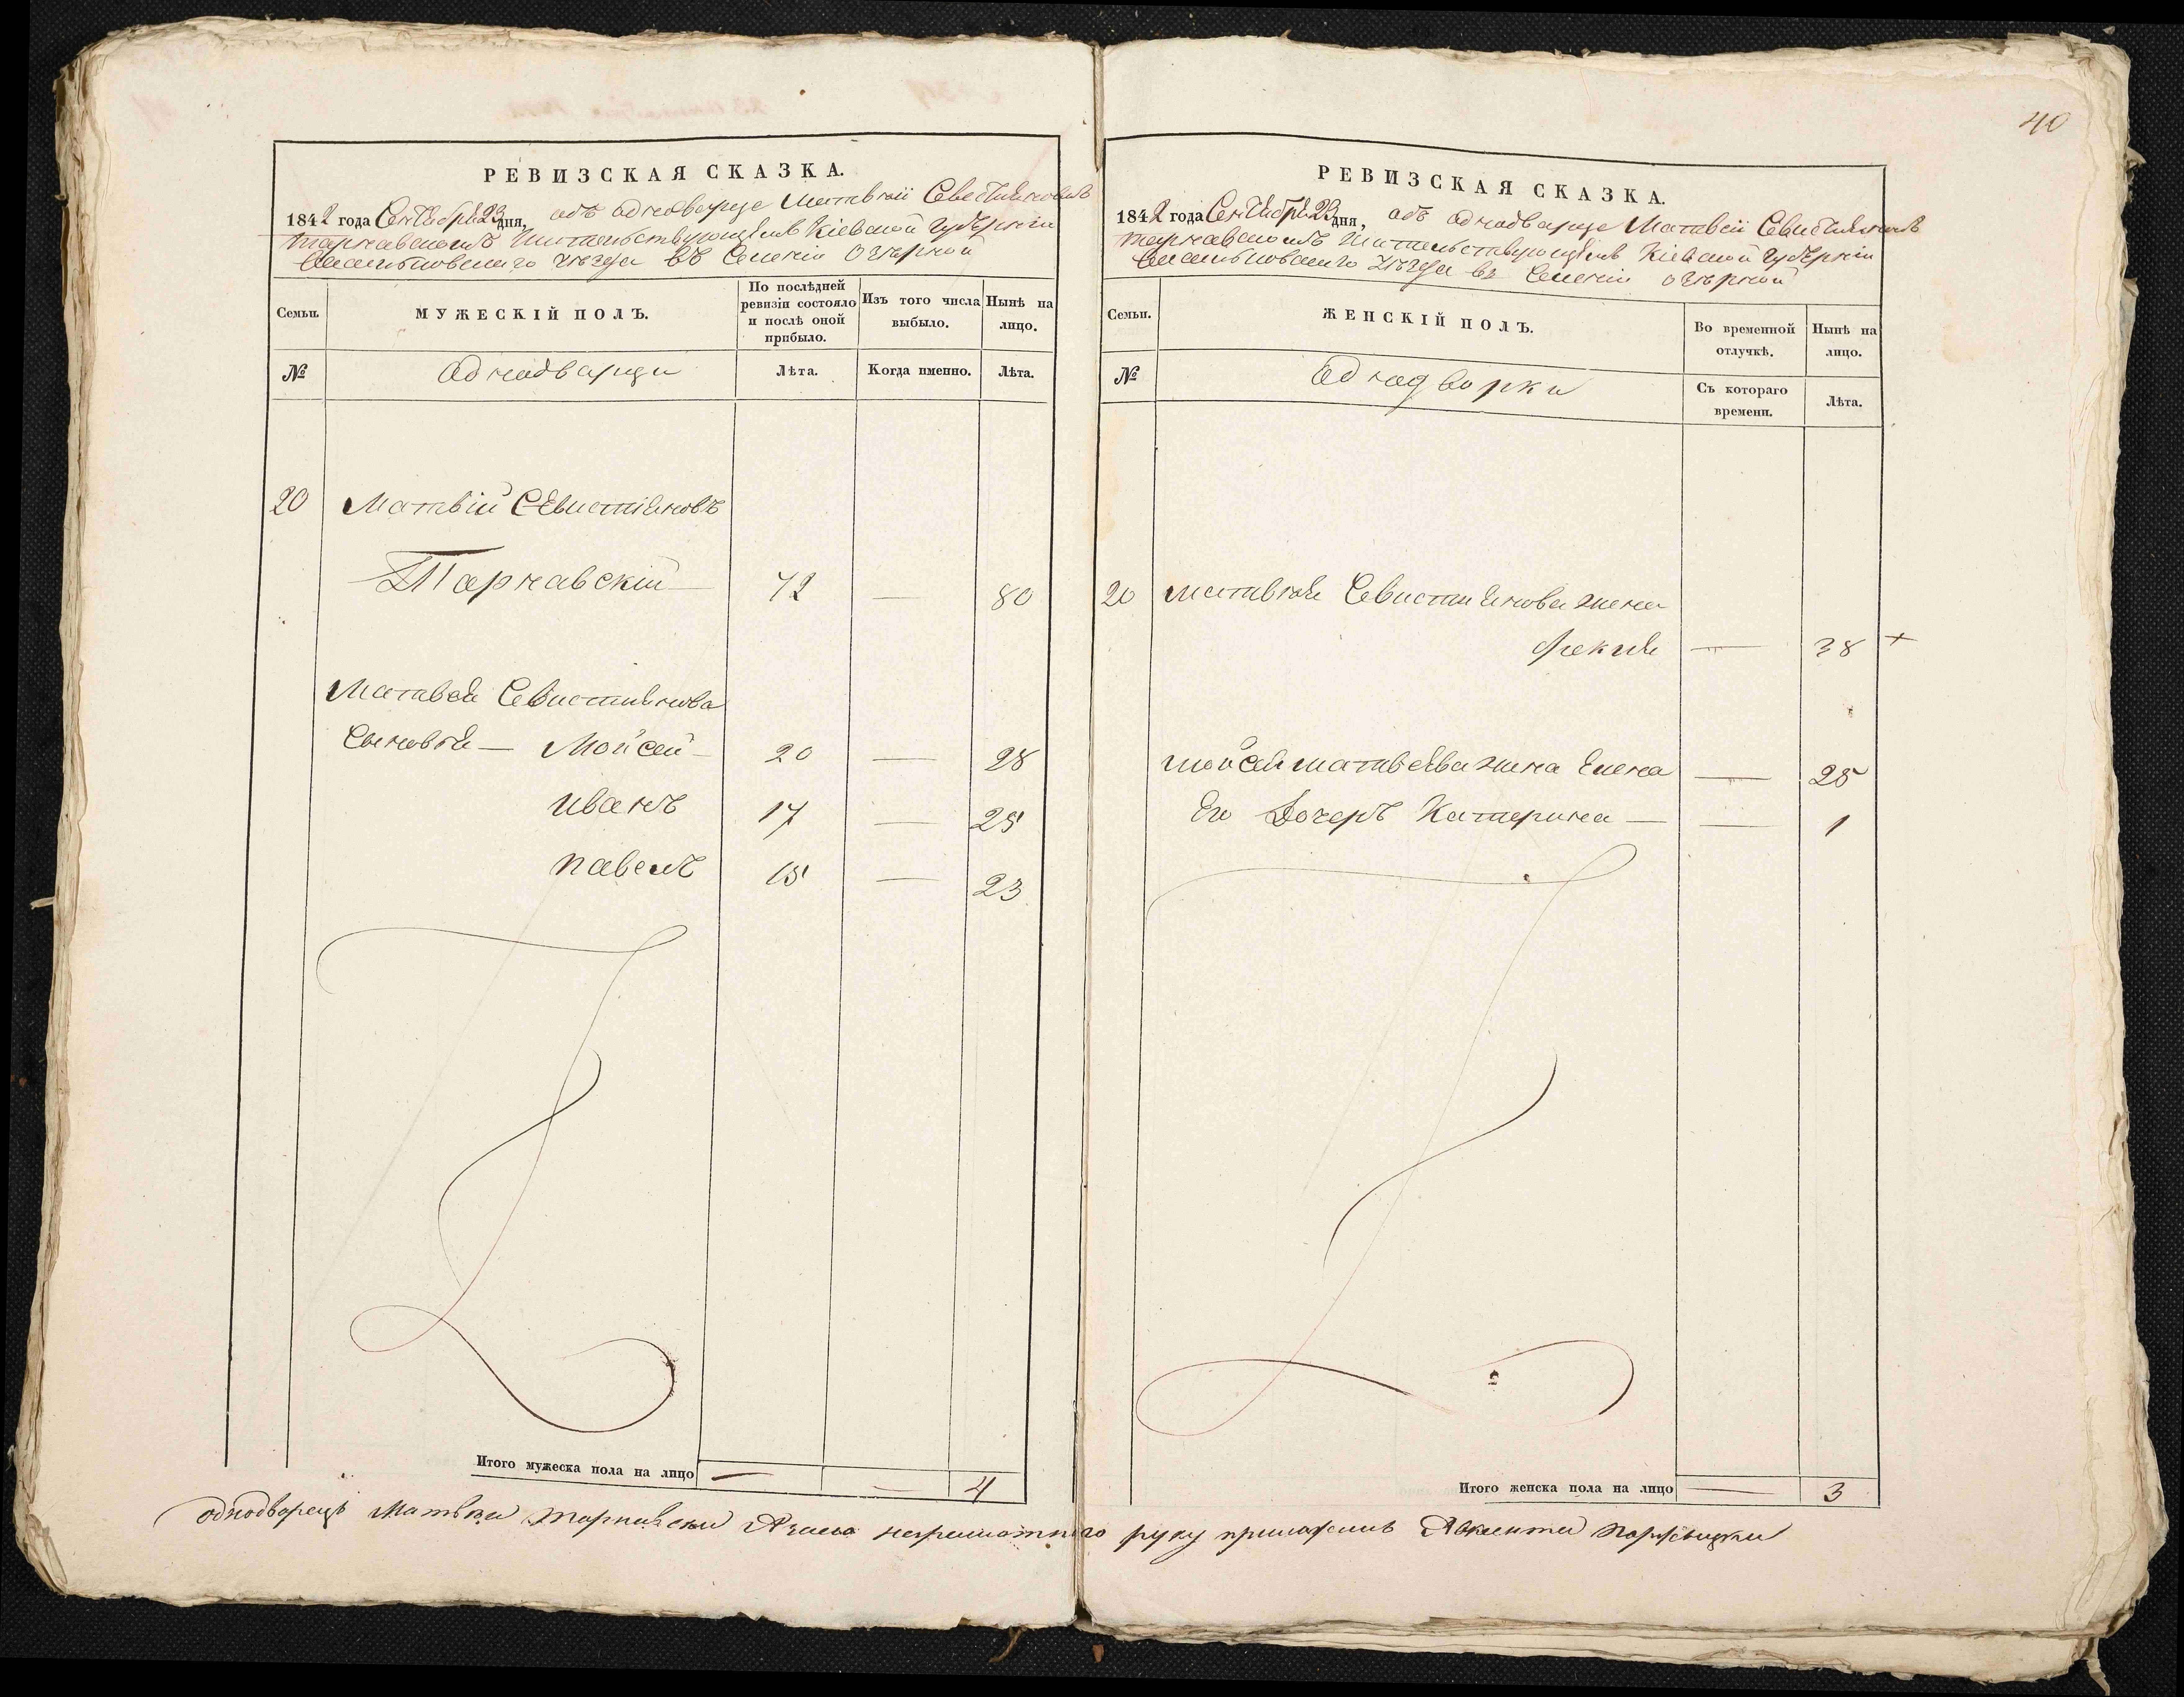 40
РЕВИЗСКАЯ СКАЗКА.
1842 года Сентября 23 дня, объ аднодварце Матвѣи Севестияновѣ
Тарнавскомъ жительствующемъ Кіевской Губерніи
Васильковскаго уѣзда въ Селеніи Озѣрной
Семьи. МУЖЕСКІЙ ПОЛЪ. По послѣдней ревизіи состояло и послѣ оной прибыло. Изъ того числа выбыло. Нынѣ на лицо.
№ Аднодварци Лѣта. Когда именно. Лѣта.
20 Матвій Севистіяновъ
Тарнавскій 72 — 80
Матвея Севистиянова
Сыновья — Мойсей 20 — 28
Иванъ 17 — 25
Павелъ 15 — 23
Итого мужеска пола на лицо — — 4
РЕВИЗСКАЯ СКАЗКА.
1842 года Сентября 23 дня, объ аднодварце Матвѣи Севистияновѣ
Тарнавскомъ жительствующемъ Кіевской Губерніи
Васильковскаго уѣзда въ Селеніи Озѣрной
Семьи. ЖЕНСКІЙ ПОЛЪ. Во временной отлучкѣ. Нынѣ на лицо.
№ Аднодворки Съ котораго времени. Лѣта.
20 Матвѣя Севистиянова жена
Фекла — 38 +
Мойсея Матвеява жина Елена — 25
Его Дочеръ Катерина — — 1
Итого женска пола на лицо — 3
однодворецъ Матвѣи Тарнавски Азанего неграмотного руку приложилъ